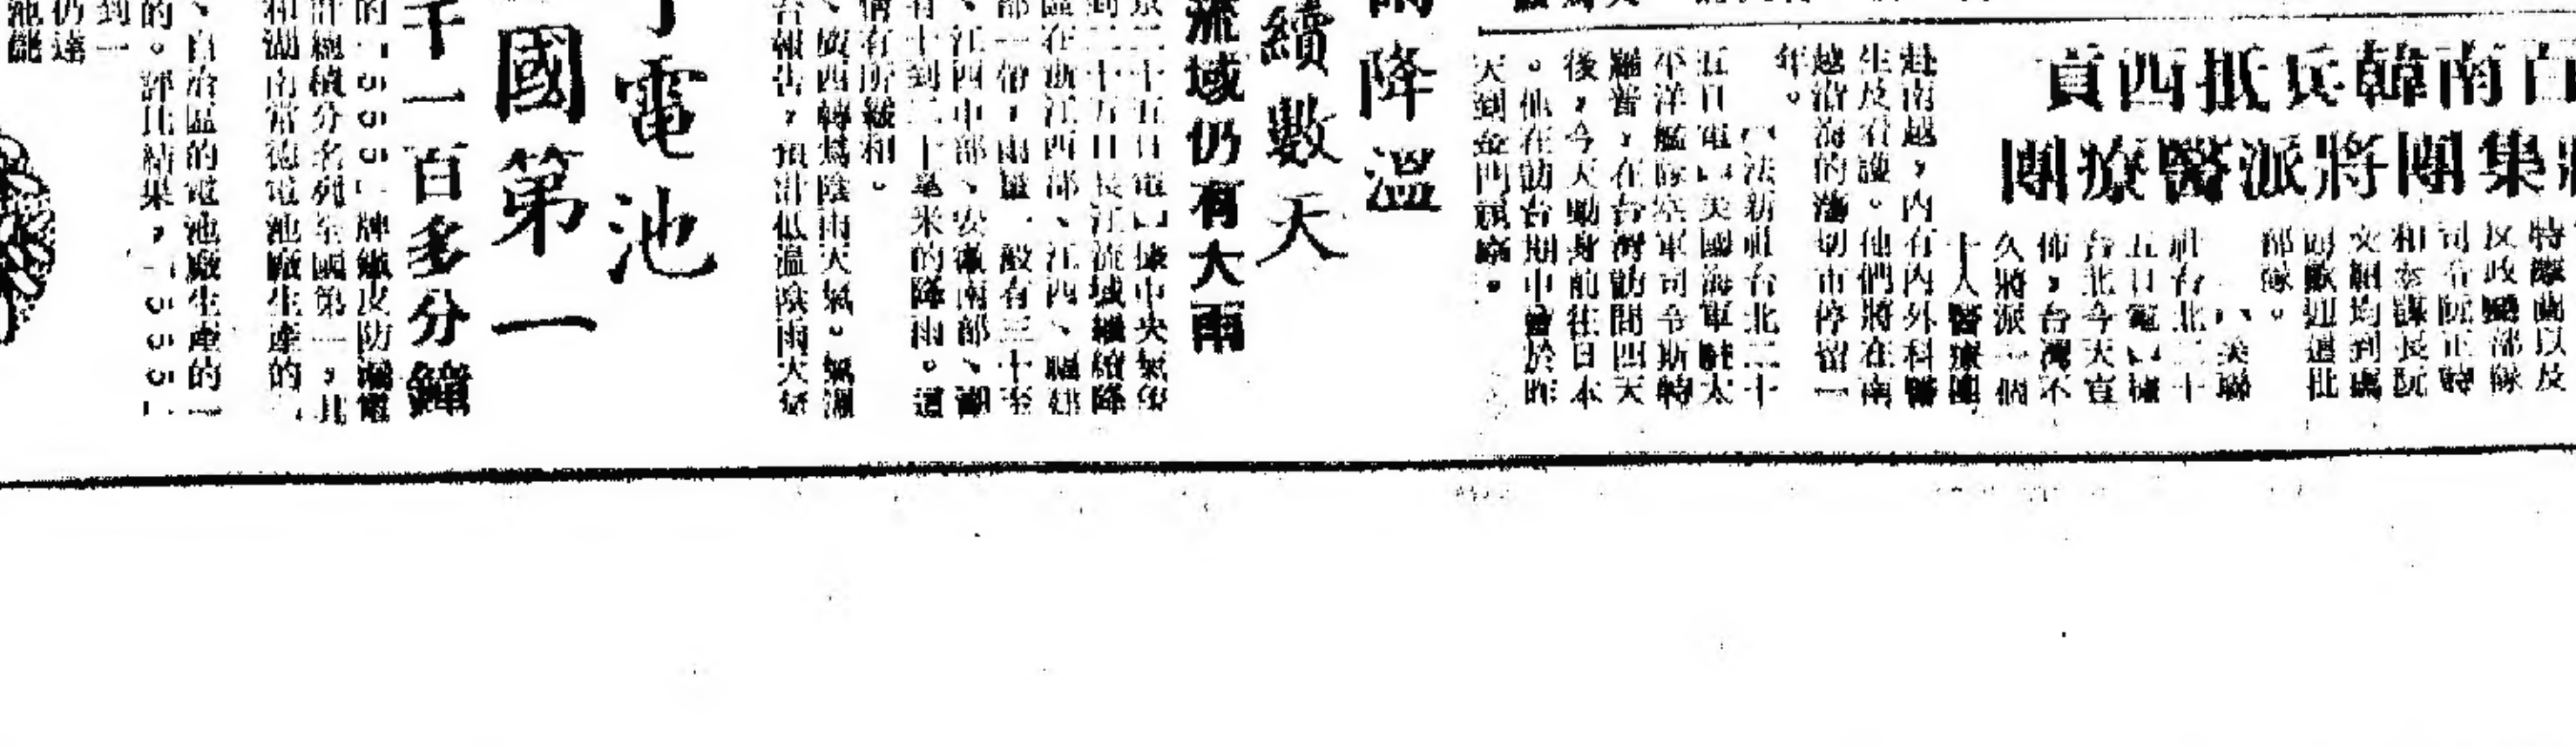 百南韓兵抵西貢
集團將派醫療團
特爾蘭以及
反政變部隊
司令阮正時
和參謀長阮
文絹均到處
頭歡迎這批
部隊。
美聯
社台北二十
五日電據
台北今天宣
佈，台灣不
久將派一個
十人醫療團
赴南越，內有內外科醫
生及看護。他們將在南
越沿海的藩切市停留一
年。
法新社台北二十
五日電美國海軍駐太
平洋艦隊空軍司令斯轉
羅普，在台灣訪問四天
後，今天動身前往日本
。他在訪台期中會於昨
天到金門視察。
降溫
續數天
流域仍有大雨
京二十五日電據中央氣象
到二十五日長江流域繼續降
區在浙江西部、江西、福建
部一帶，雨量一般有三十至
、江西中部、安徽南部、湖
有十到二十毫米的降雨。這
稍有所緩和。
、廣西轉為陰雨天氣。氣溫
台報告，預計低溫陰雨天氣
電池
國第一
千一百多分鐘
的「555」牌紙皮防漏電
計總積分名列全國第一，其
和湖南常德電池廠生產的「
、自治區的電池廠生產的「
的。評比結果，「555」
到一
仍達
池能